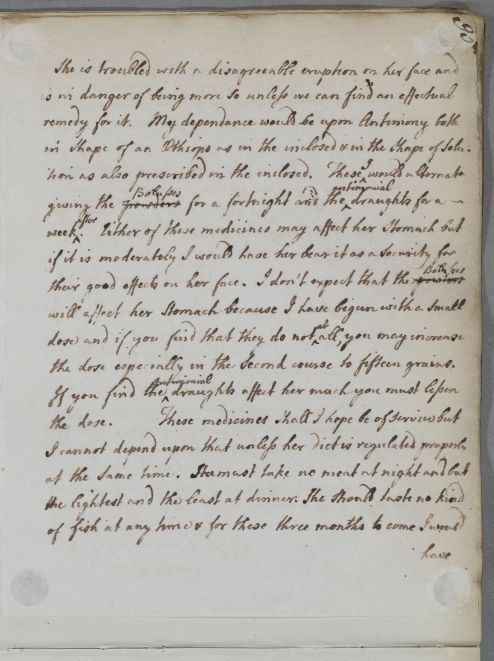 95
She is troubled with a disagreeable eruption on her face and
is in danger of being more so unless we can find an effectual
remedy for it. My dependance would be upon Antimony both
in shape of an Ethiops as in the inclosed & in the shape of Solu-
tion as also prescribed in the inclosed. These I would alternate
giving the Bolusses powders for a fortnight and the antimonial draughts for a
week after. Either of these medicines may affect her Stomach but
if it is moderately I would have her bear it as a Security for
their good effects on her face. I don't expect that the Bolusses powders
will affect her Stomach because I have begun with a small
dose and if you find that they do not at all, you may increase
the dose especially in the Second course to fifteen grains.
If you find the antimonial draughts affect her much you must lessen
the dose. These medicines shall I hope be of service but
I cannot depend upon that unless her diet is regulated properly
at the same time. She must take no meat at night and but
the lightest and the least at dinner. She should taste no kind
of fish at any time & for these three months to come I would
have